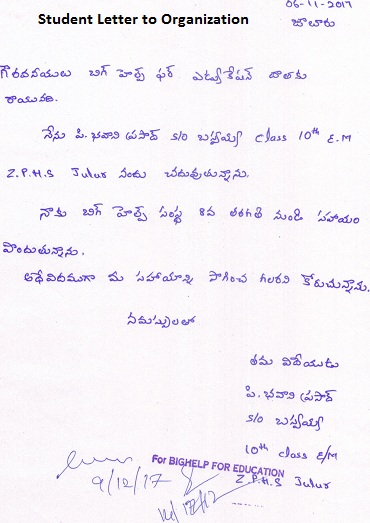 Student Letter to Organization
06-11-2017
జూలూరు
గౌరవనీయులు బిగ్ హెల్ప్ ఫర్ ఎడ్యుకేషన్ వాళ్లకు
రాయునది.
నేను పి. భవాని ప్రసాద్ S/O బస్వయ్య class 10th E.M
Z.P.H.S Julur నందు చదువుతున్నాను.
నాకు బిగ్ హెల్ప్ సంస్థ 8వ తరగతి నుండి సహాయం
పొందుతున్నాను.
అదేవిదముగా మీ సహాయాన్ని సాగించ గలరని కోరుచున్నాను.
నమస్సులతో
తమ విదేయుడు
పి. భవాని ప్రసాద్
S/O బస్వయ్య
10th class E/M
Z.P.H.S Julur
For BIGHELP FOR EDUCATION
9/12/17